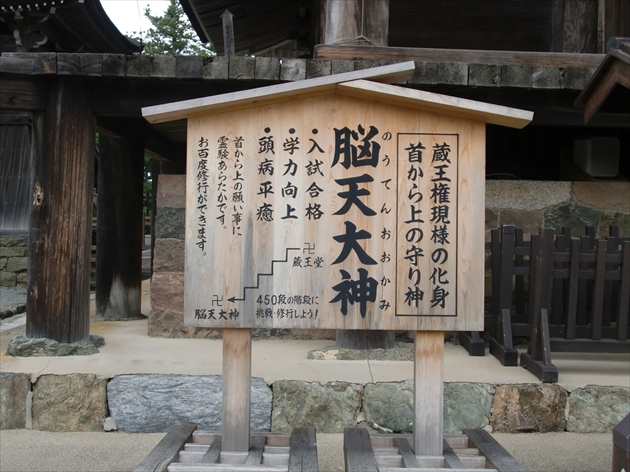 蔵王権現様の化身
首から上の守り神
脳天大神
のうてんおおかみ
・入試合格
・学力向上
・頭病平癒
首から上の願い事に
霊験あらたかです。
お百度修行ができます。
卍
蔵王堂
450段の階段に
挑戦・修行しよう！
卍
脳天大神